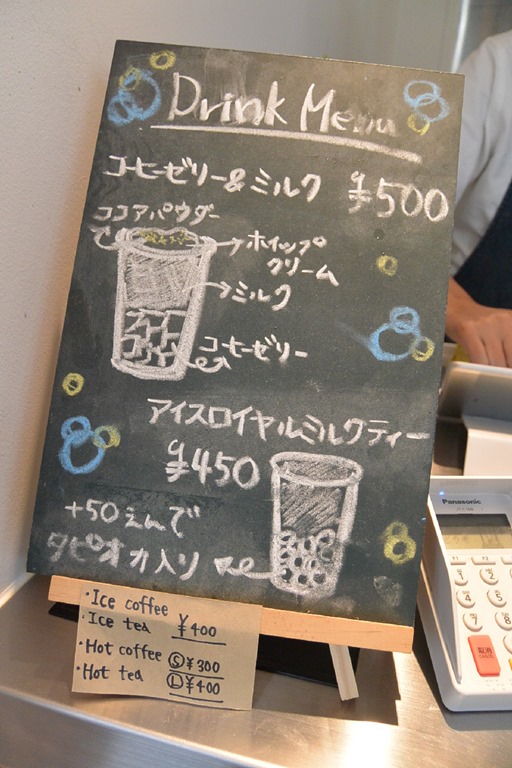 Drink Menu
コーヒーゼリー&ミルク ¥500
ココアパウダー
ホイップ
クリーム
ミルク
コーヒーゼリー
アイスロイヤルミルクティー
¥450
+50えんで
タピオカ入り
・Ice coffee
Ice tea ¥400
・Hot coffee Ⓢ¥300
・Hot tea Ⓛ¥400
Panasonic
F1 F2
1 2
4 5
7 8
取消